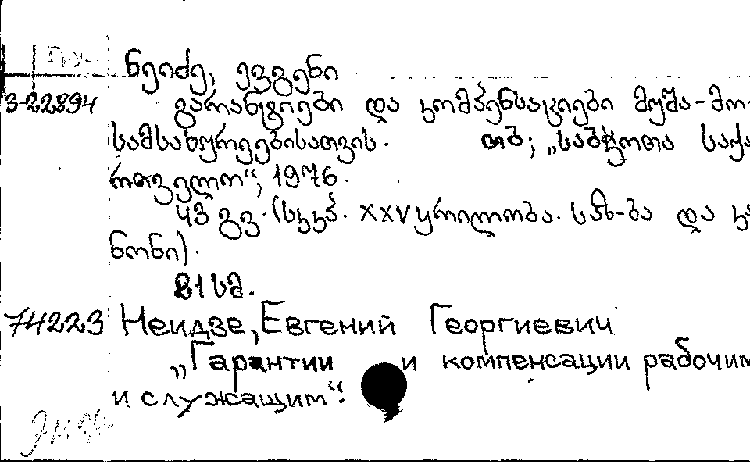 ნეიძე, ევგენი
3-22894 გარანტიები და კომპენსაციები მუშა-მო
სამსახურეებისათვის. თბ; „საბჭოთა საქა
რთველო“, 1976.
43 გვ. (სკკპ. XXV ყრილობა. საზ-ბა და კა
ნონი).
21 სმ.
74223 Неидзе, Евгений Георгиевич
„Гарантии и компенсации рабочим
и служащим“.